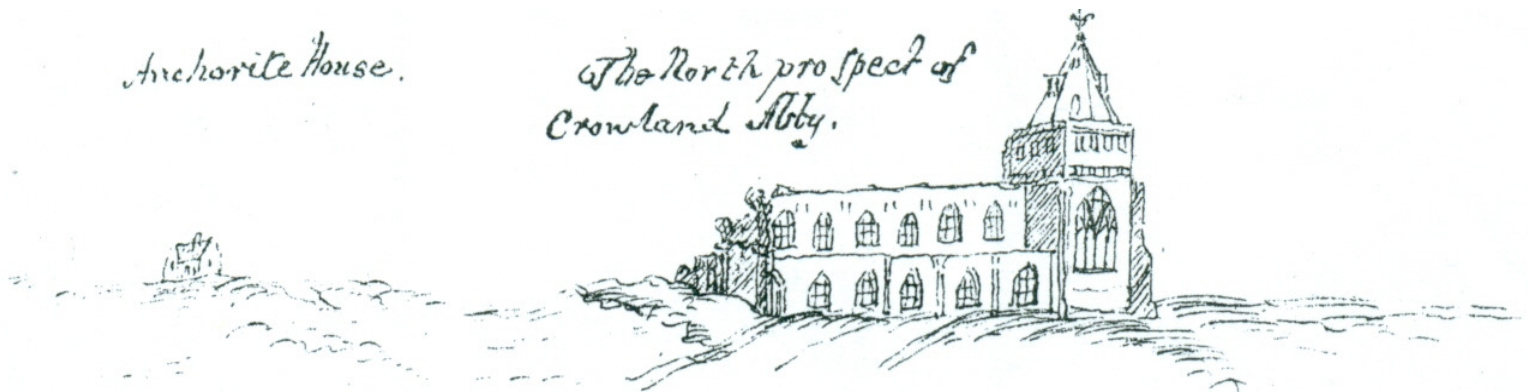 Anchorite House.
The North prospect of
Crowland Abby.